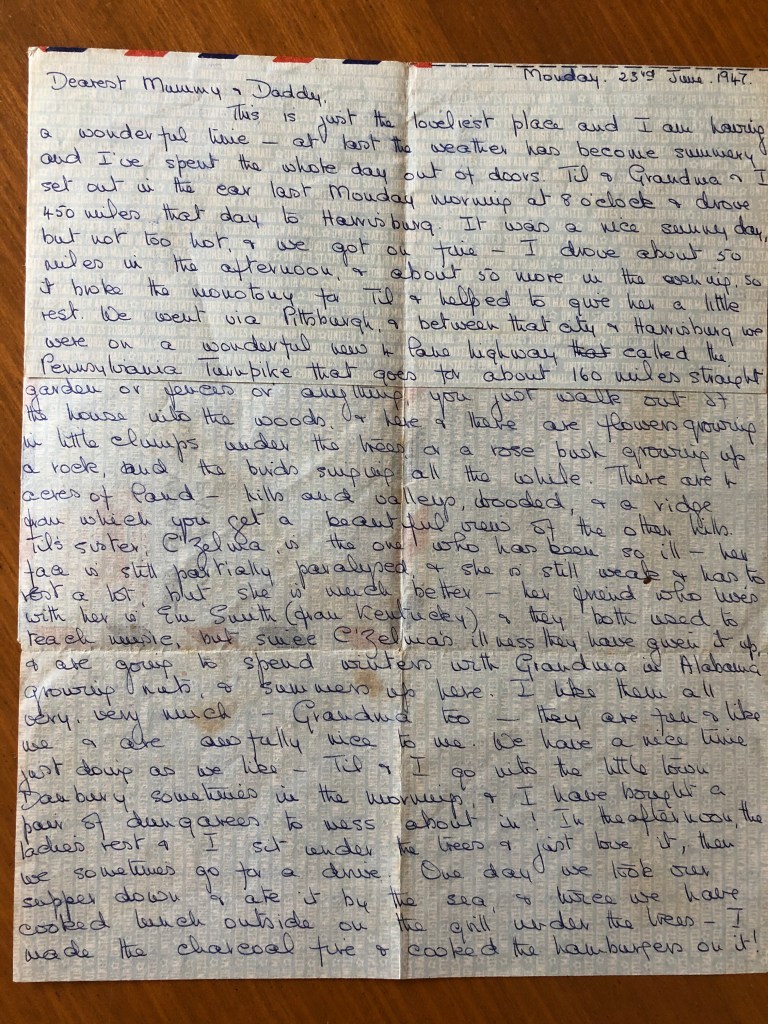 Monday. 23rd June. 1947.
Dearest Mummy & Daddy,
This is just the loveliest place and I am having
a wonderful time – at last the weather has become summery
and I've spent the whole day out of doors. Til & Grandma & I
set out in the car last Monday morning at 8 o'clock & drove
450 miles that day to Harrisburg. It was a nice sunny day,
but not too hot, & we got on fine – I drove about 50
miles in the afternoon, & about 50 more in the evening, so
it broke the monotony for Til & helped to give her a little
rest. We went via Pittsburgh, & between that city & Harrisburg we
were on a wonderful new 4 lane highway that called the
Pennsylvania Turnpike that goes for about 160 miles straight
garden or fences or anything, you just walk out of
the house into the woods, & here & there are flowers growing
in little clumps under the trees or a rose bush growing up
a rock, and the birds singing all the while. There are 4
acres of land – hills and valleys, wooded, & a ridge
from which you get a beautiful view of the other hills.
Til's sister, C'Zelma, is the one who has been so ill – her
face is still partially paralysed, & she is still weak & has to
rest a lot, but she is much better – her friend who lives
with her is Em Smith (from Kentucky), & they both used to
teach music, but since C'Zelma's illness they have given it up,
& are going to spend winters with Grandma in Alabama
growing nuts, & summers up here. I like them all
very, very much – Grandma too – they are fun & like
me & are awfully nice to me. We have a nice time
just doing as we like – Til & I go into the little town
Danbury sometimes in the morning, & I have bought a
pair of dungarees to mess about in! In the afternoon, the
ladies rest & I sit under the trees & just love it, then
we sometimes go for a drive. One day we took our
supper down & ate it by the sea, & twice we have
cooked lunch outside on the grill under the trees – I
made the charcoal fire & cooked the hamburgers on it!